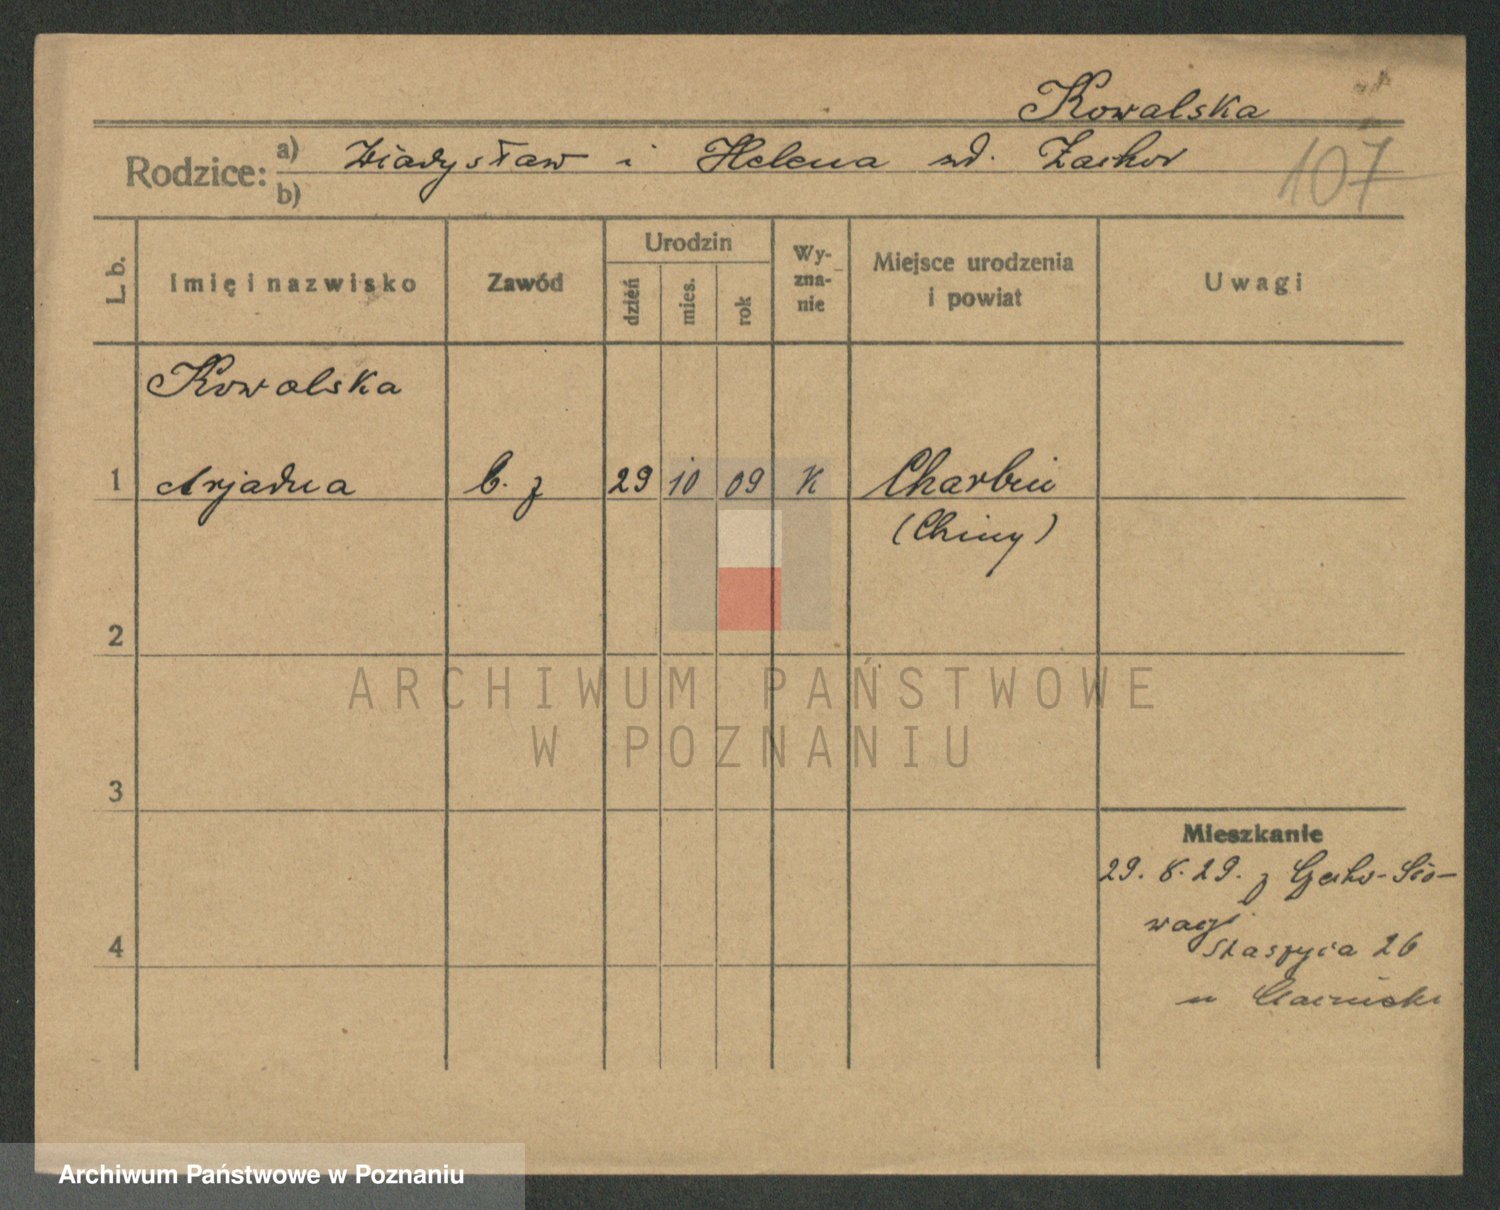 Kowalska
107
Rodzice: a) Władysław i Helena zd. Zachor
b)
L. b.
Imię i nazwisko
Zawód
Urodzin
dzień
mies.
rok
Wy-
zna-
nie
Miejsce urodzenia
i powiat
Uwagi
Kowalska
1 Arjadna b. z 29 10 09 K Charbin
(Chiny)
2
ARCHIWUM PAŃSTWOWE
W POZNANIU
3
Mieszkanie
29. 8. 29. z Czecho-Sło-
wacji
4
Staszyca 26
u
Archiwum Państwowe w Poznaniu